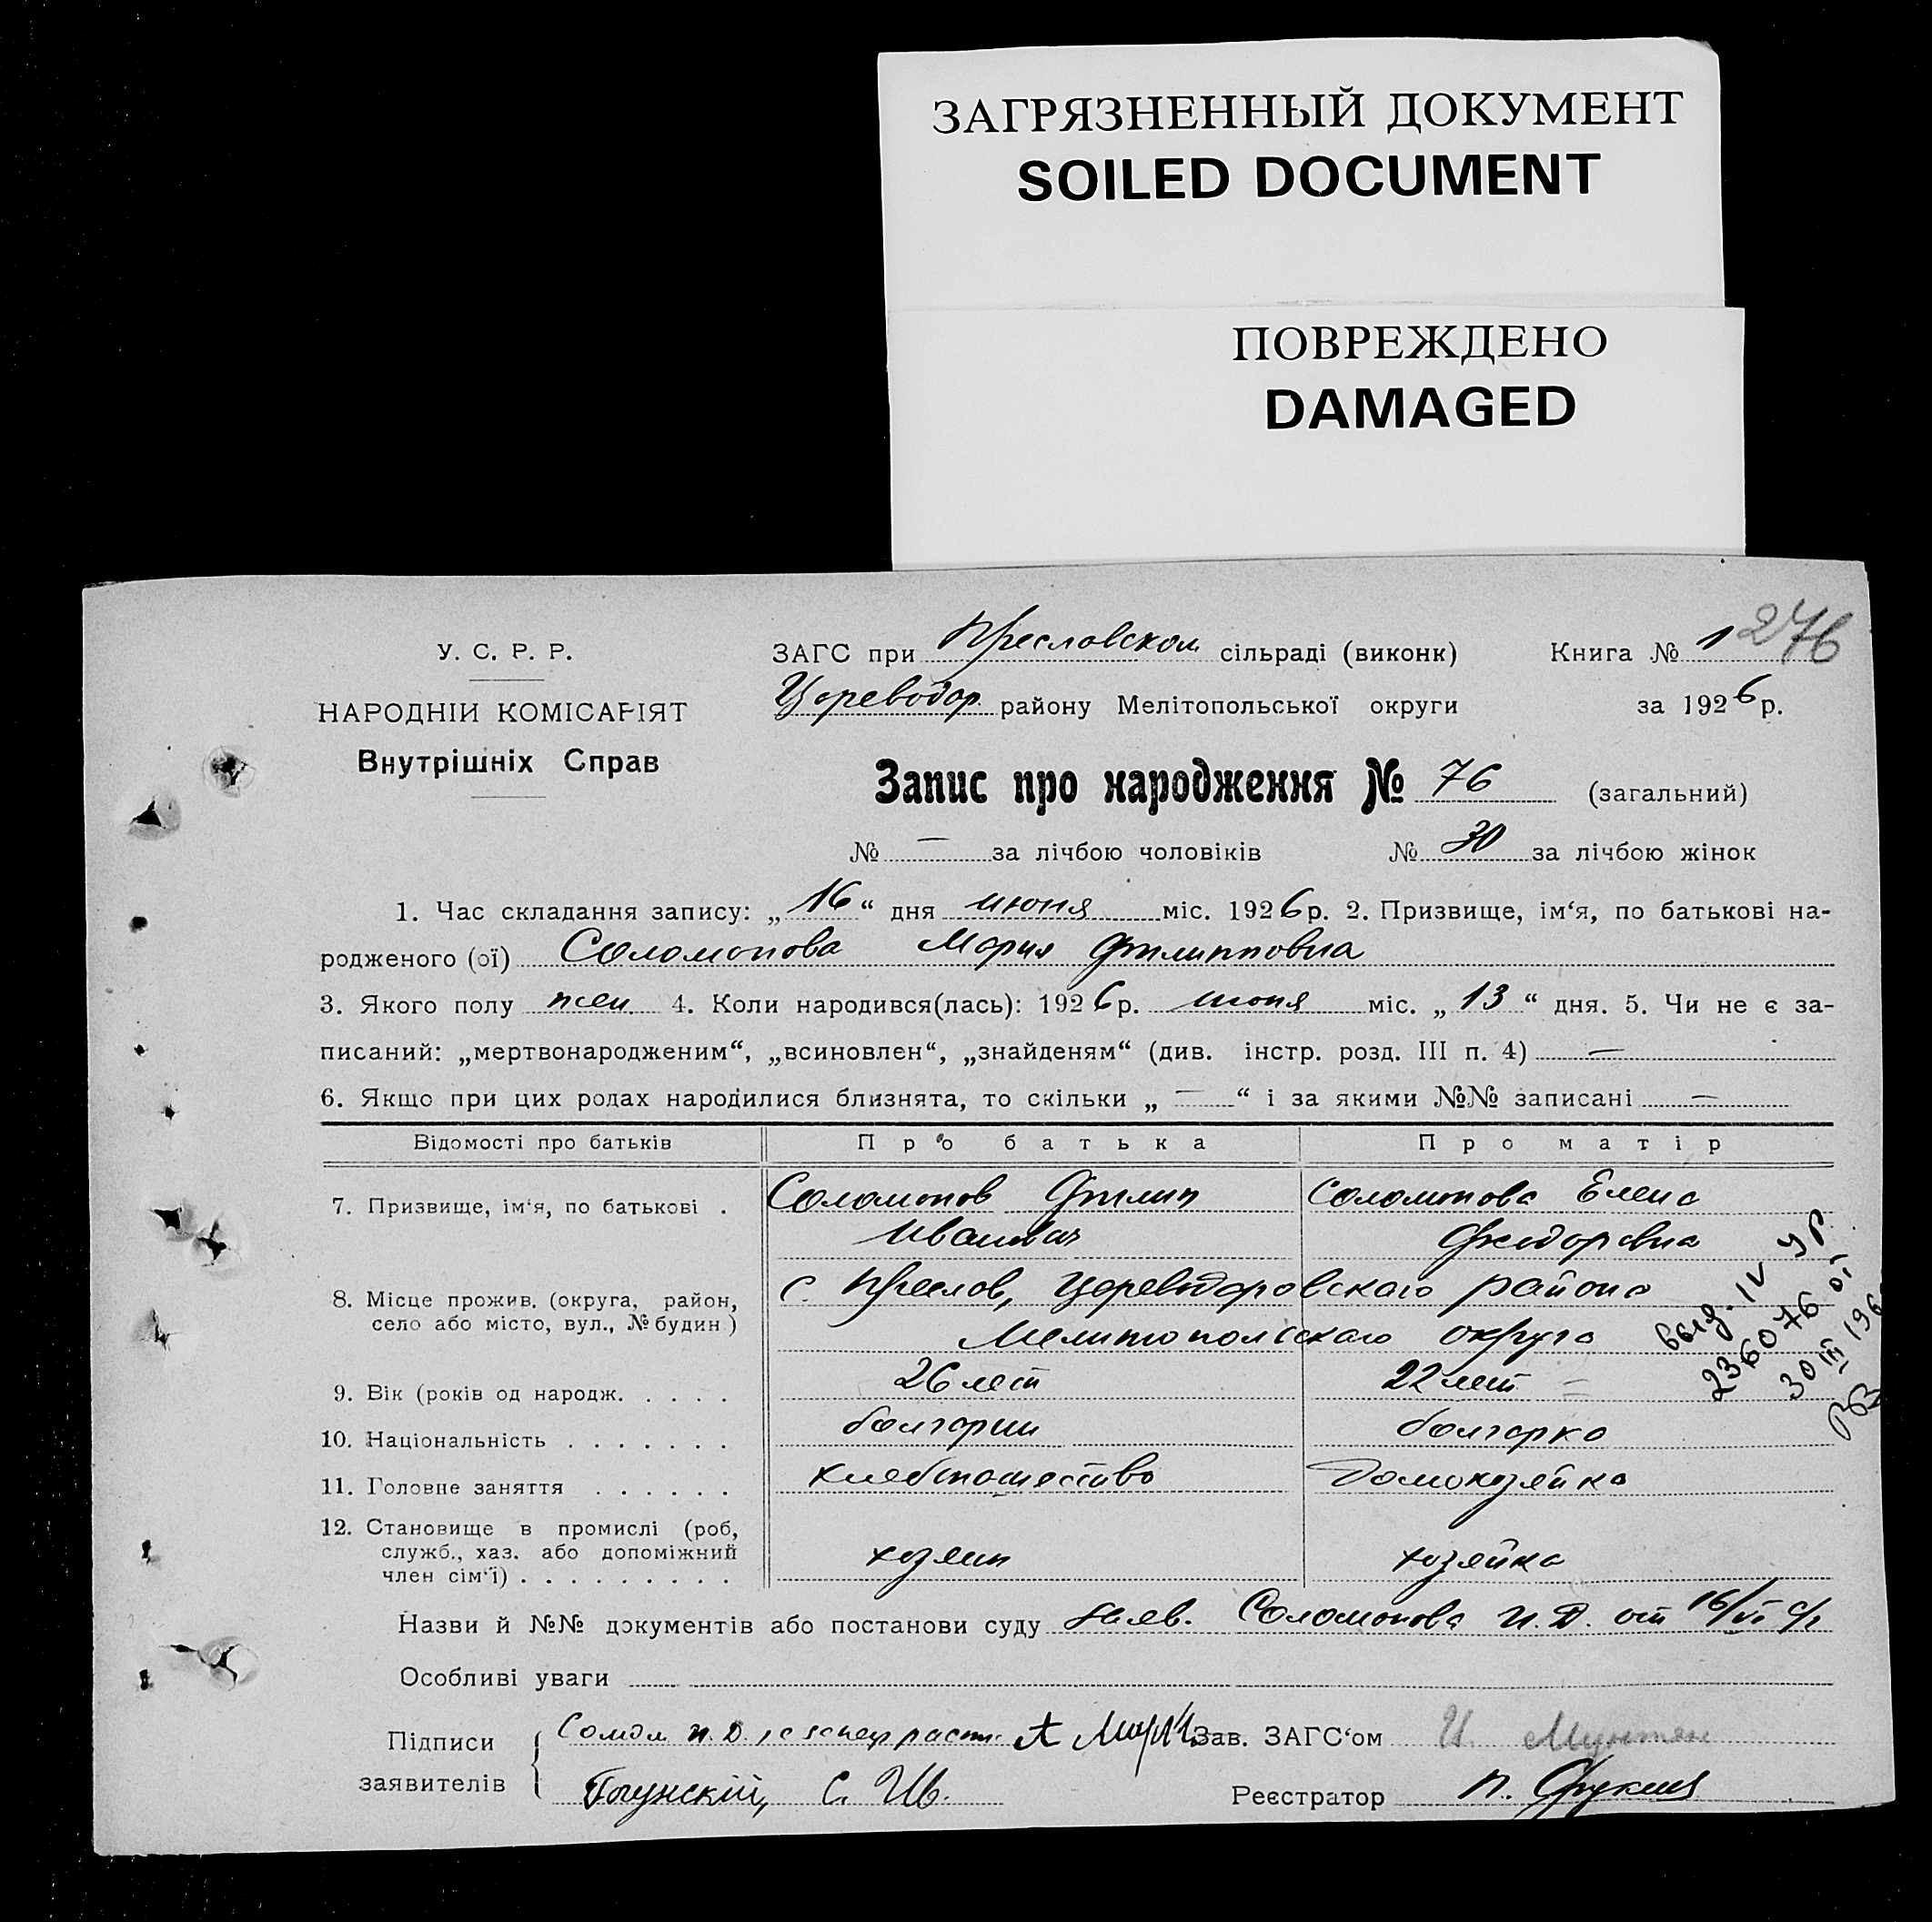 ЗАГРЯЗНЕННЫЙ ДОКУМЕНТ
SOILED DOCUMENT
ПОВРЕЖДЕНО
DAMAGED
276
У. С. Р. Р.
НАРОДНІЙ КОМІСАРІЯТ
Внутрішніх Справ
ЗАГС при Пресловском сільраді (виконк) Книга № 1
Цареводар. району Мелітопольської округи за 1926 р.
Запис про народження № 76 (загальний)
№ — за лічбою чоловіків № 30 за лічбою жінок
1. Час складання запису: „16“ дня июня міс. 1926 р. 2. Призвище, ім‘я, по батькові на-
родженого (ої) Соломонова Мария Филипповна
3. Якого полу жен. 4. Коли народився(лась): 1926 р. июня міс. „13“ дня. 5. Чи не є за-
писаний: „мертвонародженим“, „всиновлен“, „знайденям“ (див. інстр. розд. III п. 4) —
6. Якщо при цих родах народилися близнята, то скільки „—“ і за якими №№ записані —
Відомості про батьків Про батька Про матір
7. Призвище, ім‘я, по батькові . Соломонов Филип Соломонова Елена
Иванович Федоровна
8. Місце прожив. (округа, район, село або місто, вул., № будин.) с. Преслов, Цареводаровскаго района
Мелитопольскаго округа
9. Вік (років од народж. . . . . 26 лет 22 лет
10. Національність . . . . . . . болгарин болгарка
11. Головне заняття . . . . . . хлебопашество домохозяйка
12. Становище в промислі (роб, служб., хаз. або допоміжний член сім‘ї) . . . . . . . . . хозяин хозяйка
выд. IV УР
236076 от
30 III 196
Назви й №№ документів або постанови суду заяв. Соломонова И. Д. от 16/VI с/г
Особливі уваги
Підписи заявителів Солом И. Д. Зав. ЗАГС‘ом И. Мунтян
С. Ив. Реєстратор П.